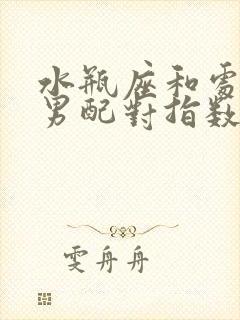 水瓶座和處
男配對指數
雯舟舟